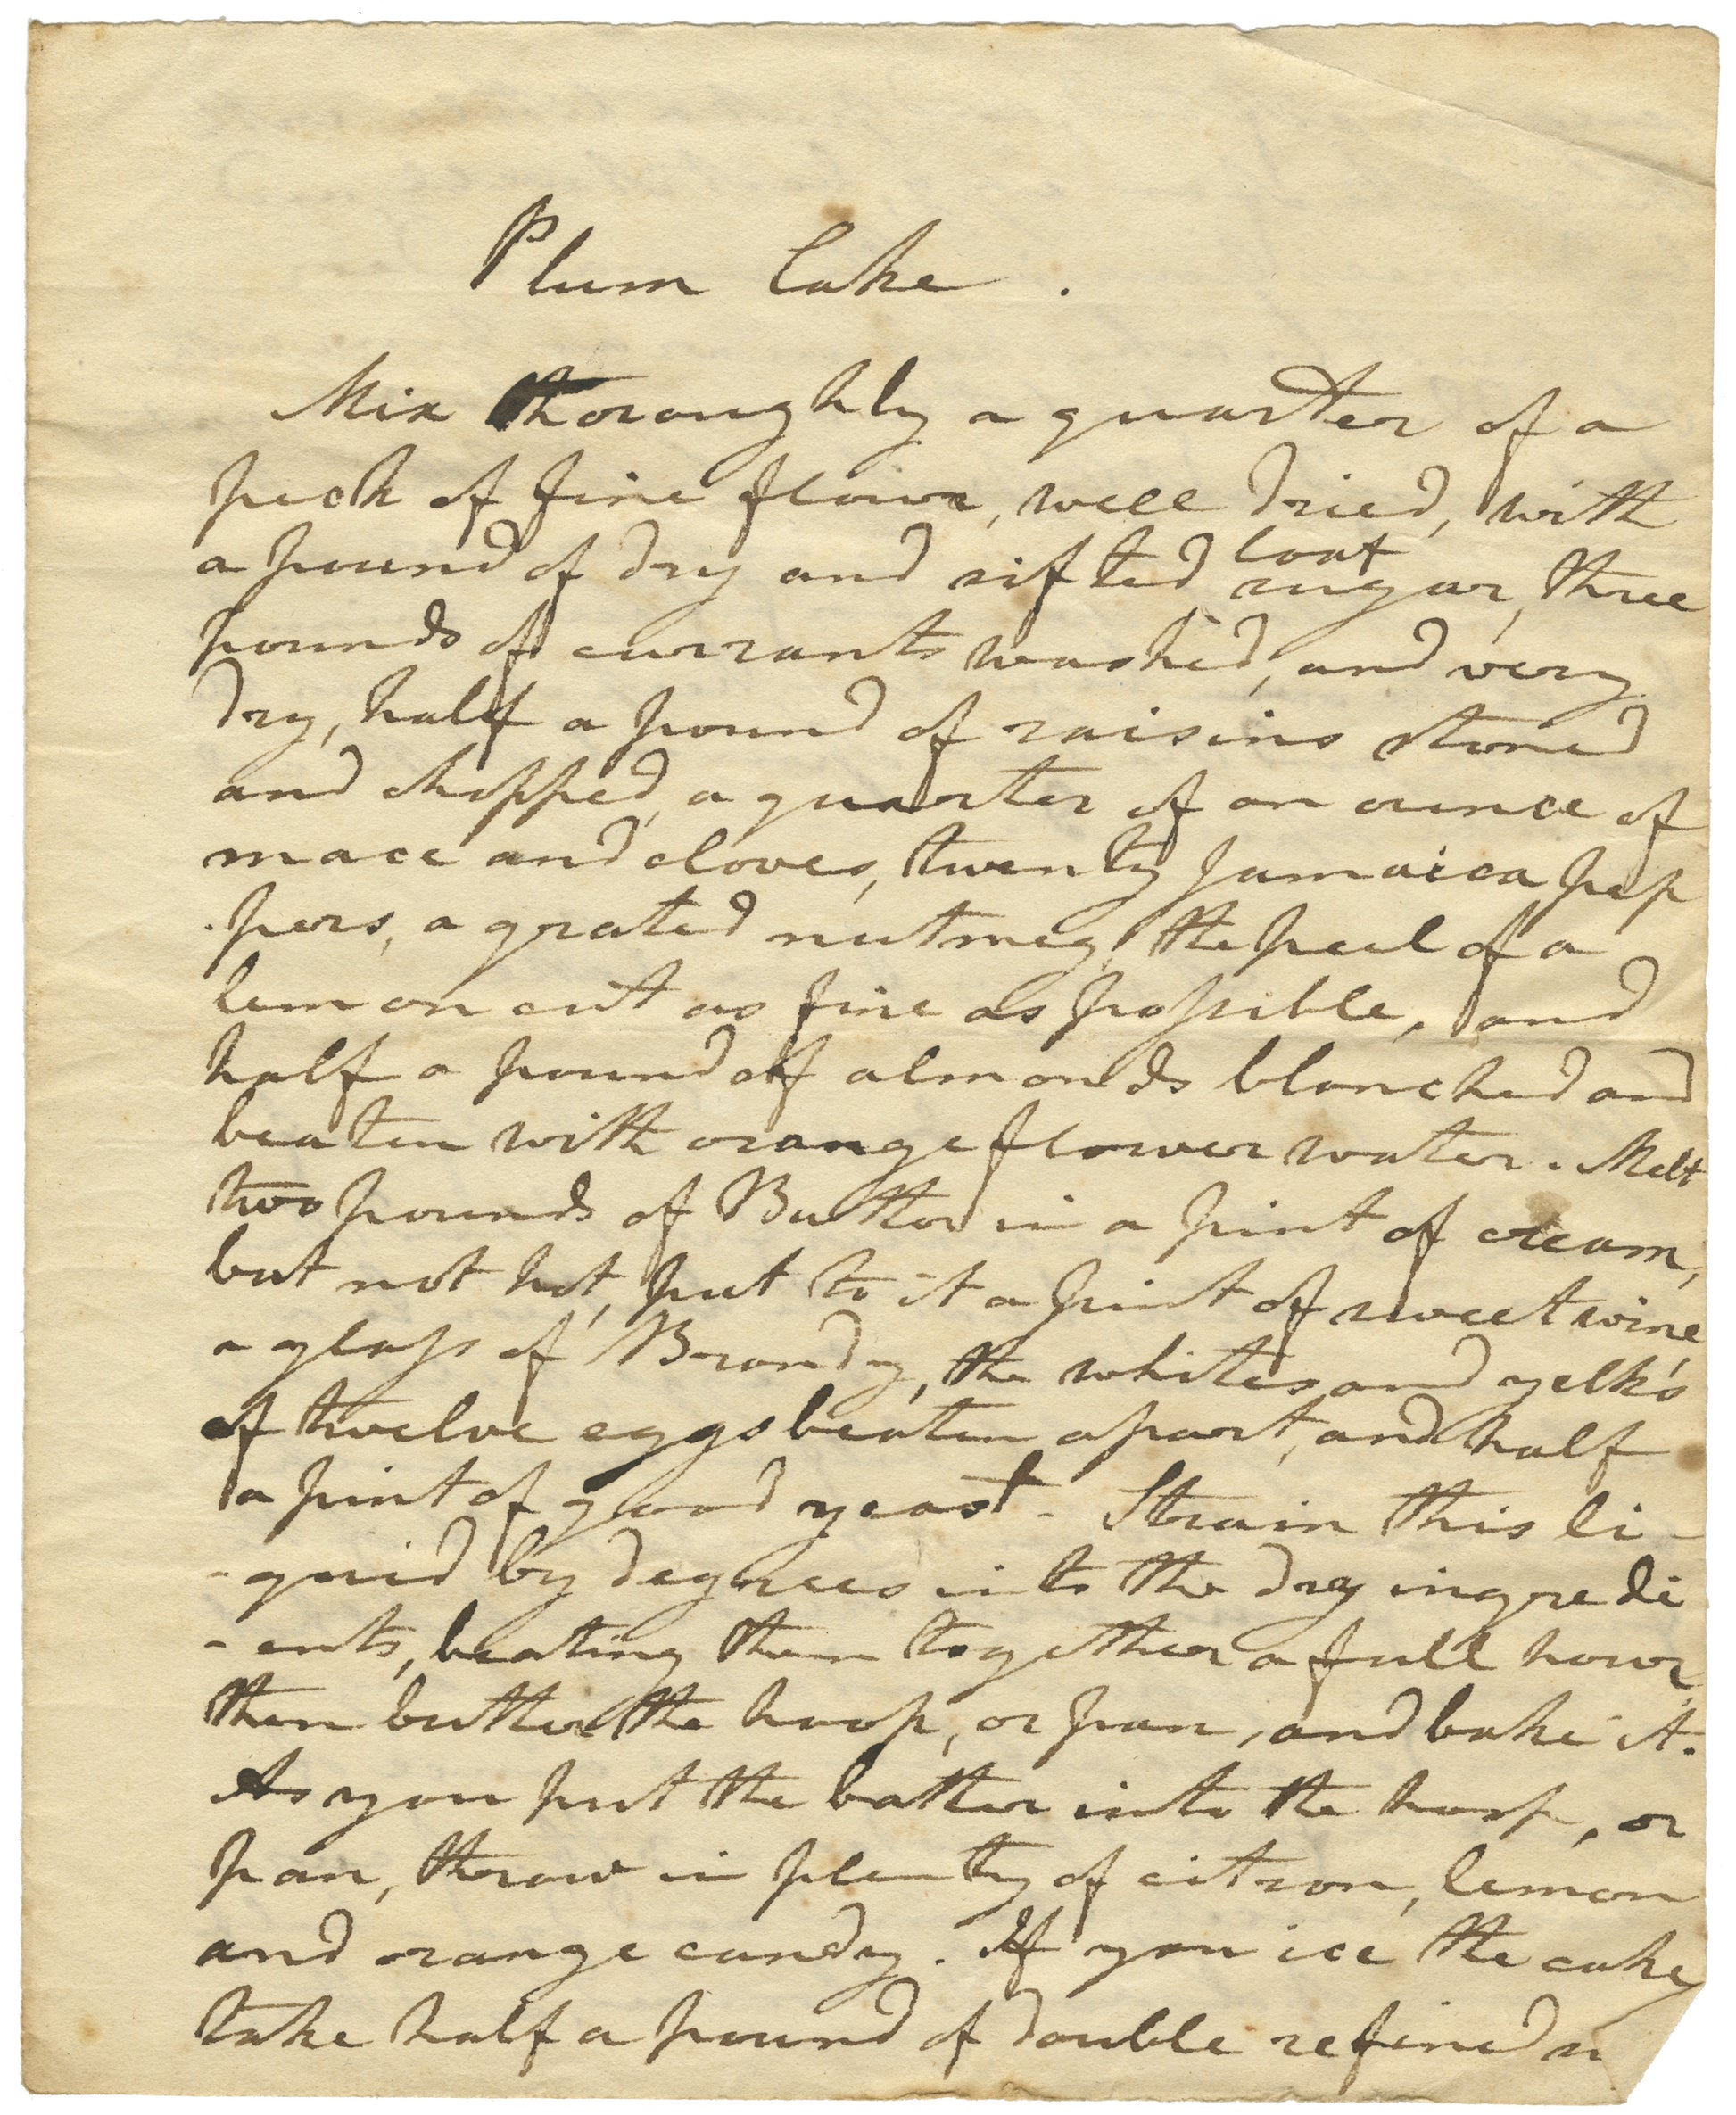 Plum Cake .
Mix thoroughly a quarter of a
peck of fine flour, well dried, with
a pound of dry and sifted loaf sugar, three
pounds of currants washed, and very
dry, half a pound of raisins stoned
and chopped, a quarter of an ounce of
mace and cloves, twenty Jamaica pep
-pers, a grated nutmeg, the peel of a
lemon cut as fine as possible, and
half a pound of almonds blanched and
beaten with orange flower water. Melt
two pounds of Butter in a pint of cream,
but not hot, put to it a pint of sweet wine,
a glass of Brandy, the whites and yelks
of twelve eggs beaten apart, and half
a pint of good yeast - Strain this li-
-quid by degrees into the dry ingredi
-ents, beating them together a full hour,
then butter the hoop, or pan, and bake it.
As you put the batter into the hoop, or
pan, throw in plenty of citron, lemon
and orange candy. If you ice the cake
take half a pound of double refined su